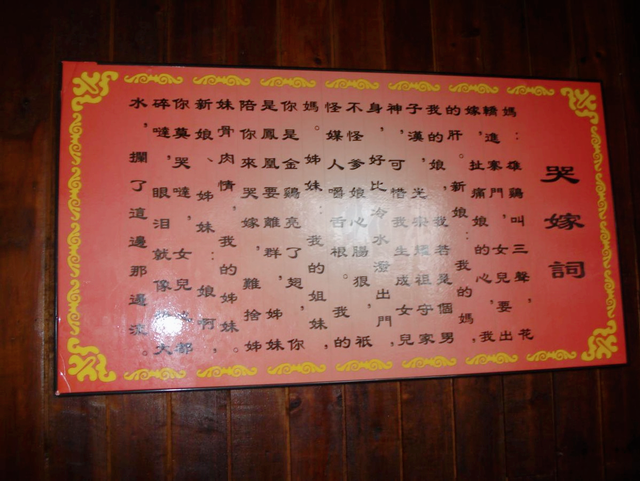 哭嫁詞
媽：雄鷄叫三聲，花
轎進寨門，女兒要出
嫁，扯痛娘的心，我
的肝。新娘：我的媽，
我的娘，我若是個男
子漢，光宗耀祖守家
神，可惜我生成女兒
身，好比冷水潑出門，
不怪爹娘心腸狠，祇
怪媒人嚼舌根。我的
媽。姊妹：我的姐妹，
你是金鷄亮了翅，你
是鳳凰要離群，姊妹
陪你來哭嫁，難捨姊
妹骨肉情，我的姊妹。
新娘、姊妹：娘啊，
你莫哭噠，女兒心都
碎噠，眼泪就像大
水，攔了這邊那邊流。